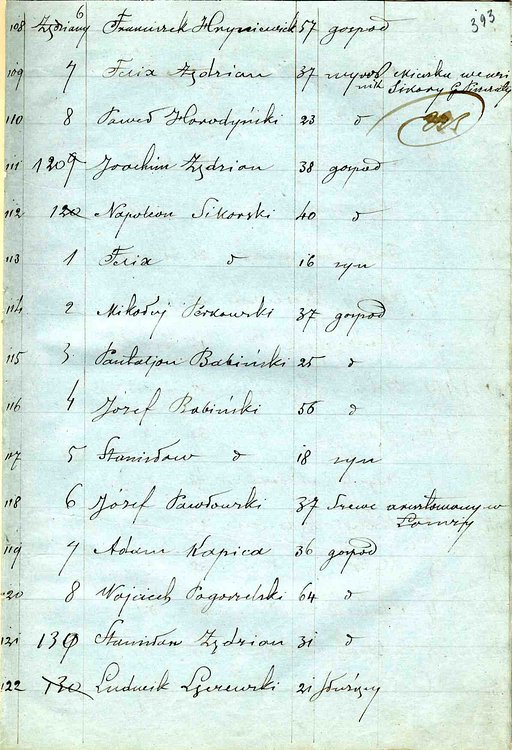 393
6
108 Zędziany Franciszek Hryniewick 57 gospod
109 7 Felix Zędzian 37 wyrob Mieszka we wsi
nik Sikory G Piszczaty
110 8 Paweł Horodyński 23 d
111 1209 Joachim Zędzian 38 gospod
112 120 Napoleon Sikorski 40 d
113 1 Felix d 16 syn
114 2 Mikołaj Perkowski 37 gospod
115 3 Pantaljon Babiński 25 d
116 4 Józef Babiński 56 d
117 5 Stanisław d 18 syn
118 6 Józef Pawłowski 37 Szewc aresztowany w
Łomży
119 7 Adam Kapica 36 gospod
120 8 Wojciech Pogorzelski 64 d
121 130 Stanisław Zędzian 31 d
122 130 Ludwik 21 służący